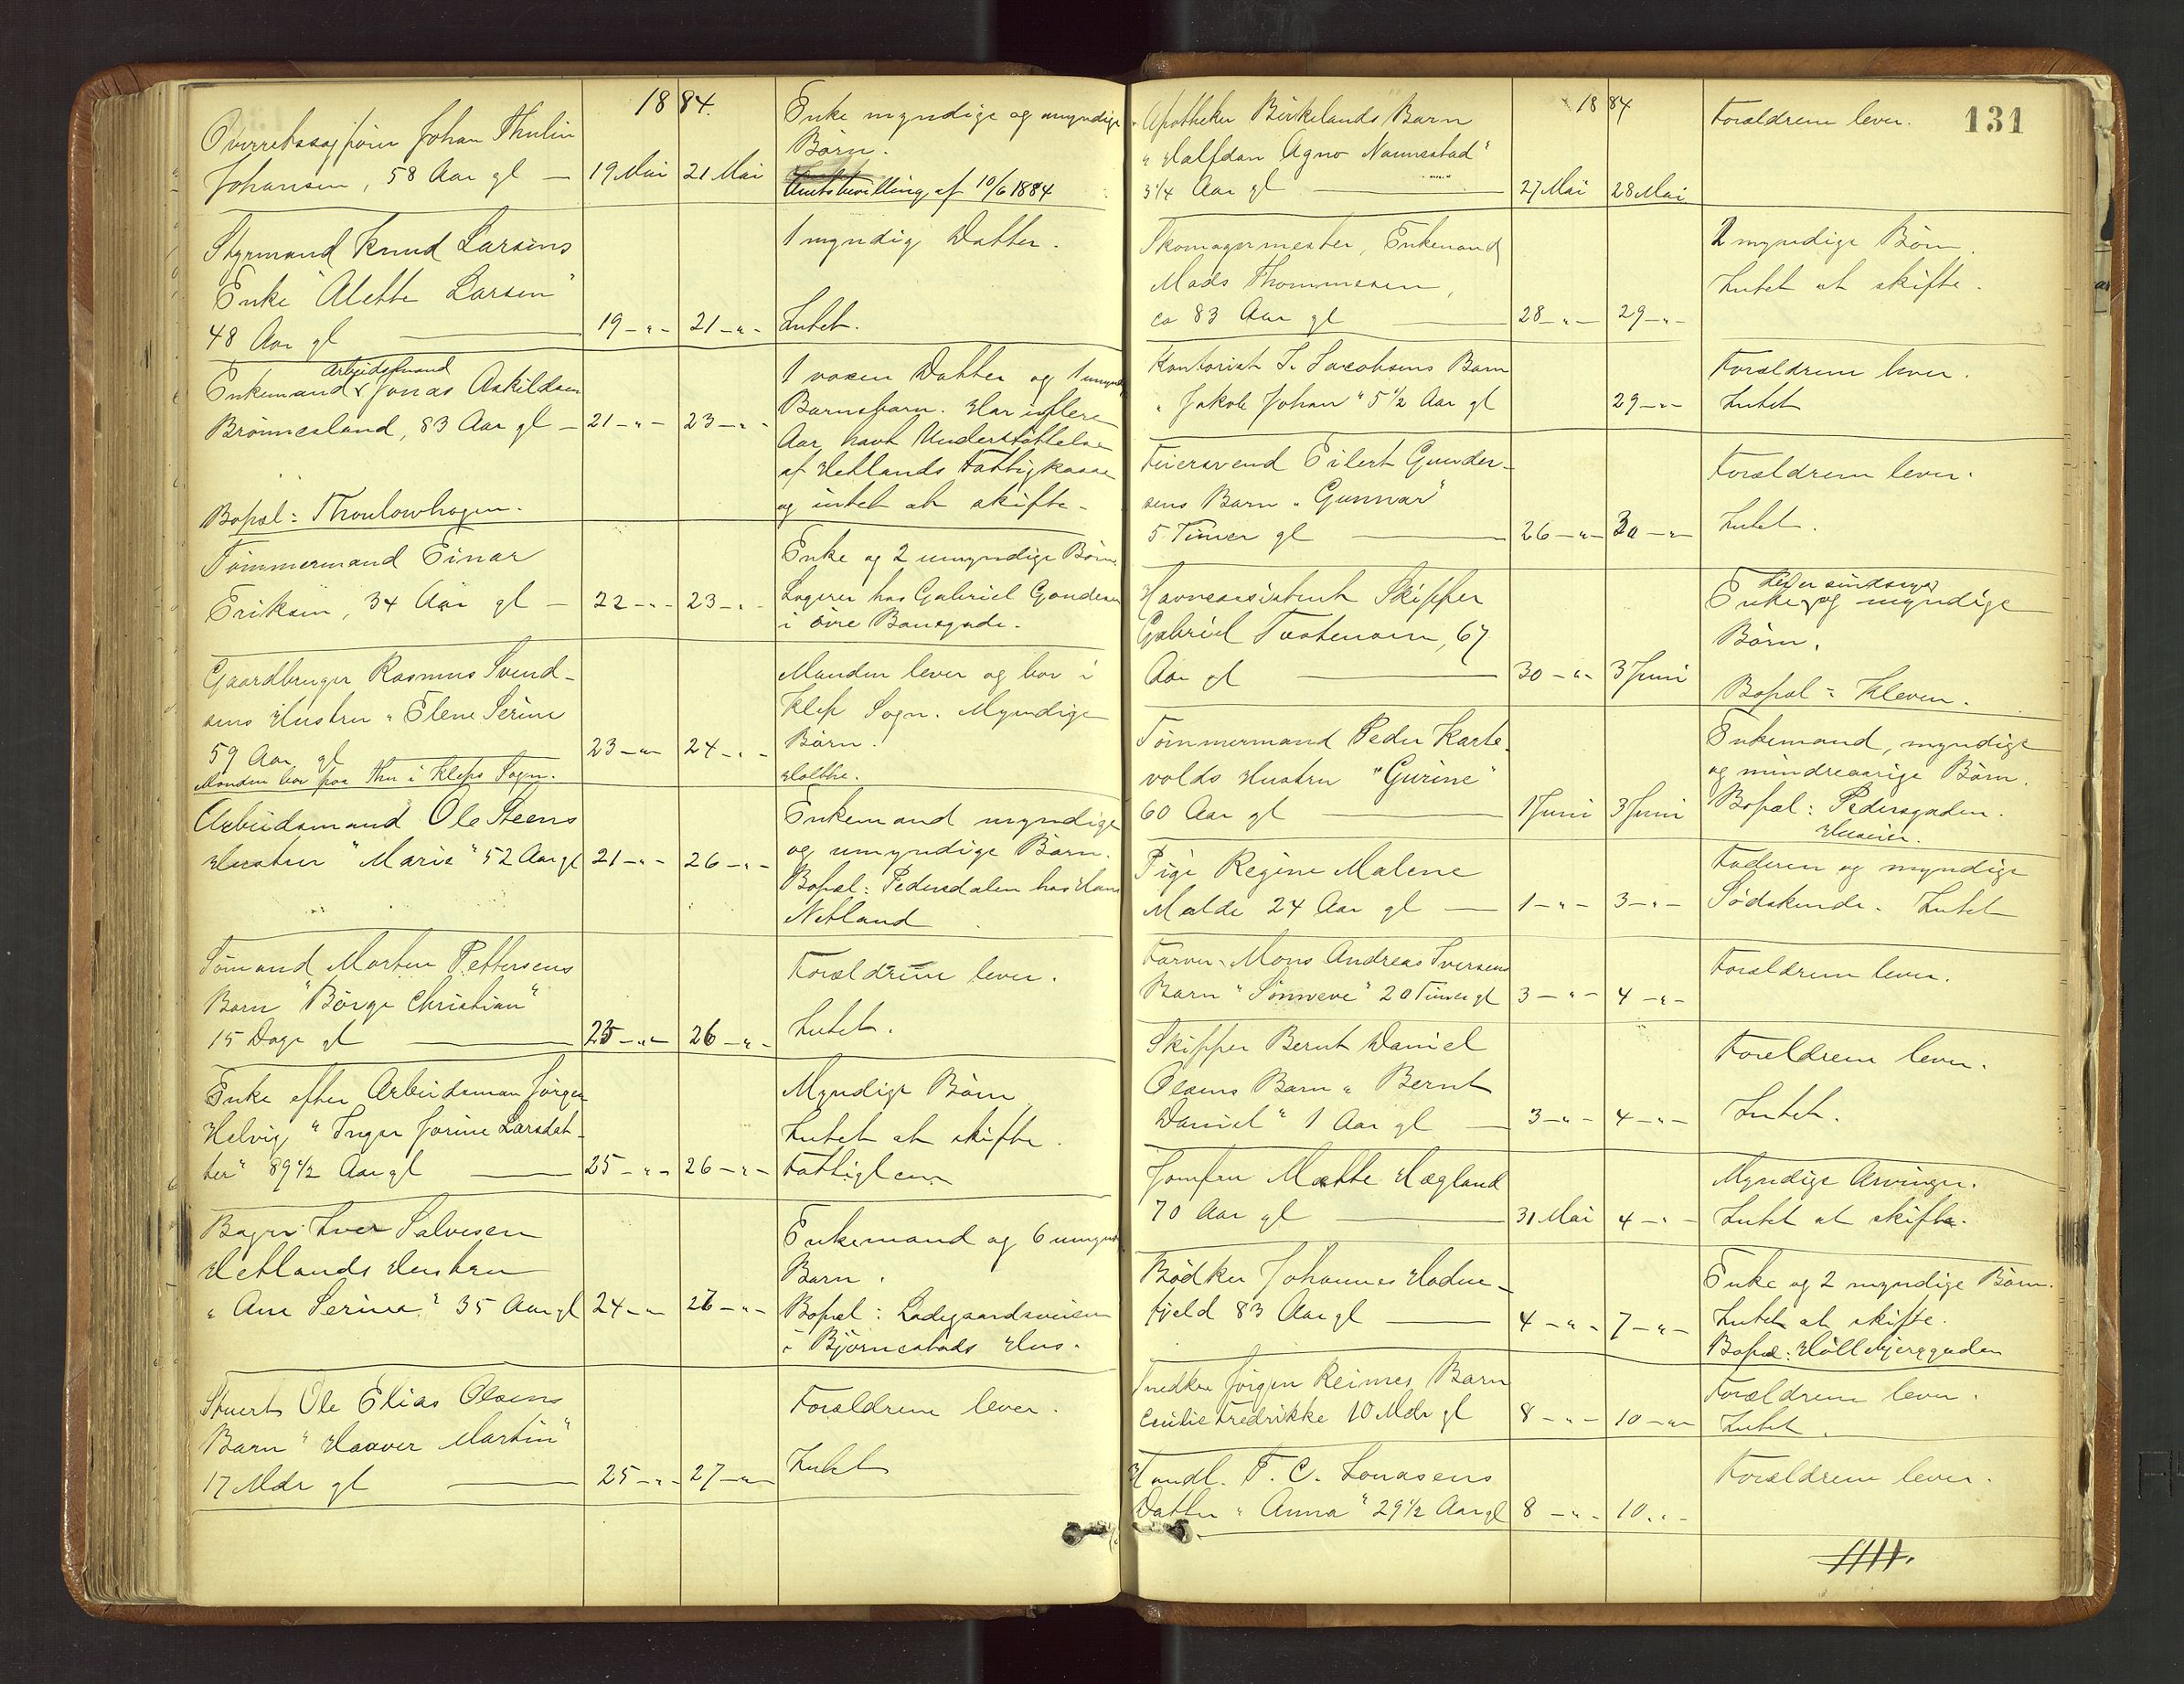 1884.
Overretssagförer Johan Thulin
Johansen, 58 Aar gl — 19 Mai 21 Mai
Enke myndige og umyndige
Börn.
Amtsbevilling af 10/6 1884
Styrmand Knud Larsens
Enke "Alette Larsen"
48 Aar gl — 19 —"— 21 —"—
1 myndig Datter.
Intet.
Enkemand arbeidsmand Jonas Askildsen
Brönnesland, 83 Aar gl — 21 —"— 23 —"—
Bopæl: Thoulowhagen.
1 voxen Datter og 1 umynd
Barnebarn. Har i flere
Aar havt Understöttelse
af Hetlands Fattigkasse
og intet at skifte.
Tömmermand Einar
Eriksen, 34 Aar gl — 22 —"— 23 —"—
Enke og 2 umyndige Börn.
Logerer hos Gabriel Gundersen
i övre Banegade.
Gaardbruger Rasmus Svend-
sens Hustru "Elene Serine
59 Aar gl 23 —"— 24 —"—
Manden bor paa Thu i Kleps Sogn.
Manden lever og bor i
Klep Sogn. Myndige
Börn.
Arbeidsmand Ole Steens
Hustru "Marie" 52 Aar gl 21 —"— 26 —"—
Enkemand myndige
og umyndige Börn.
Bopæl: Pedersdalen hos Hans
Netland
Sömand Morten Pettersens
Barn "Börge Christian"
15 Dage gl — 25 —"— 26 —"—
Forældrene lever.
Intet.
Enke efter Arbeidsman Jörgen
Helvig "Inger Jorine Larsdat-
ter" 89 1/2 Aar gl — 25 —"— 26 —"—
Myndige Börn
Intet at skifte.
Fattiglem
Bager Iver Salvesen
Hetlands Hustru
"Ane Serina" 35 Aar gl 24 —"— 26 —"—
Enkemand og 6 umynd
Barn.
Bopæl: Ladegaardsveien
i Björnestads Hus.
Stuert Ole Elias Olsens
Barn "Haaver Martin"
17 Mdr gl — 25 —"— 27 —"—
Forældrene lever.
Intet
131
1884
Apotheker Birkelands Barn
"Halfdan Agno Nannestad"
3 1/4 Aar gl — 27 Mai 28 Mai
Forældrene lever.
Skomagermester, Enkemand
Mads Thommesen,
ca 83 Aar gl — 28 —"— 29 —"—
2 myndige Börn.
Intet at skifte.
Kontorist I. Jacobsens Barn
"Jakob Johan" 5 1/2 Aar gl 29 —"—
Forældrene lever.
Intet
Feiersvend Eilert Gunder-
sens Barn "Gunnar"
5 Timer gl — 26 —"— 30 —"—
Forældrene lever.
Intet.
Havneassistent Skipper
Gabriel Tastensen, 67
Aar gl — 30 —"— 3 Juni
der er sindssyg
Enke og myndige
Börn.
Bopæl: Kleven.
Tömmermand Peder Karte-
volds Hustru "Gurine"
60 Aar gl — 1 Juni 3 Juni
Enkemand, myndige
og mindreaarige Börn.
Bopæl: Pedersgaden.
Huseier.
Pige Regine Malene
Malde 24 Aar gl — 1 —"— 3 —"—
Faderen og myndige
Södskende. Intet
Farver Mons Andreas Iversens
Barn "Sönneve" 20 Timer gl 3 —"— 4 —"—
Forældrene lever.
Skipper Bernt Daniel
Olsens Barn "Bernt
Daniel" 1 Aar gl — 3 —"— 4 —"—
Forældrene lever.
Intet.
Jomfru Mætte Hægland
70 Aar gl — 31 Mai 4 —"—
Myndige Arvinger.
Intet at skifte.
Bödker Johannes Hodne-
fjeld 83 Aar gl — 4 —"— 7 —"—
Enke og 2 myndige Börn.
Intet at skifte.
Snedker Jörgen Reimes Barn
Cecilie Fredrikke 10 Mdr gl 8 —"— 10 —"—
Forældrene lever.
Intet.
Handl. T. C. Jonasens
Datter "Anna" 29 1/2 Aar gl 8 —"— 10 —"—
Forældrene lever.